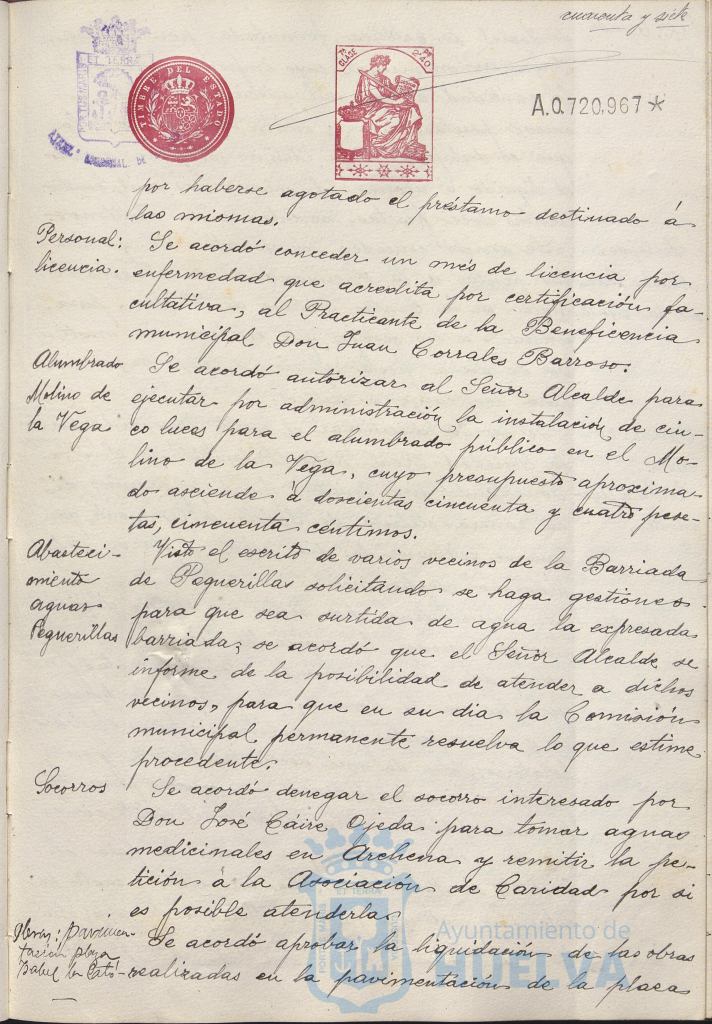 cuarenta y siete
ET TERRÆ
TIMBRE DEL ESTADO
7ª CLASE
Pts 2'40
A.0.720,967*
por haberse agotado el préstamo destinado á
las mismas.
Personal:
licencia.
Se acordó conceder un més de licencia por
enfermedad que acredita por certificación fa-
cultativa, al Practicante de la Beneficencia
municipal Don Juan Corrales Barroso.
Alumbrado
Molino de
la Vega
Se acordó autorizar al Señor Alcalde para
ejecutar por administración la instalación de cin-
co luces para el alumbrado público en el Mo-
lino de la Vega, cuyo presupuesto aproxima-
do asciende á doscientas cincuenta y cuatro pese-
tas, cincuenta céntimos.
Abasteci-
miento
aguas
Peguerillas
Visto el escrito de varios vecinos de la Barriada
de Peguerillas solicitando se haga gestiones
para que sea surtida de agua la expresada
barriada; se acordó que el Señor Alcalde se
informe de la posibilidad de atender a dichos
vecinos, para que en su dia la Comisión
municipal permanente resuelva lo que estime
procedente.
Socorros
Se acordó denegar el socorro interesado por
Don José Cáire Ojeda para tomar aguas
medicinales en Archena y remitir la pe-
tición á la Asociación de Caridad por si
es posible atenderla.
Obras: pavimen-
tación plaza
Isabel la Cató-
Se acordó aprobar la liquidación de las obras
realizadas en la pavimentación de la plaza
Ayuntamiento de
HUELVA